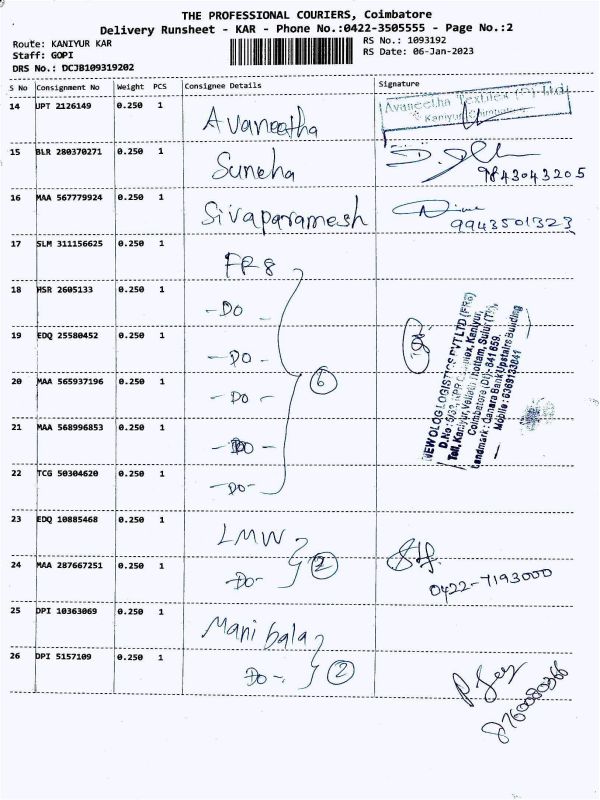 THE PROFESSIONAL COURIERS, Coimbatore
Delivery Runsheet - KAR - Phone No.:0422-3505555 - Page No.:2
Route: KANIYUR KAR
Staff: GOPI
DRS No.: DCJB109319202
RS No.: 1093192
RS Date: 06-Jan-2023
S No Consignment No Weight PCS Consignee Details Signature
14 UPT 2126149 0.250 1 Avaneetha
Avaneetha Textiles (P) Ltd
Kaniyur, Coimbatore
15 BLR 280370271 0.250 1 Suneha
9843043205
16 MAA 567779924 0.250 1 Sivaparamesh
9943501323
17 SLM 311156625 0.250 1 FR8
18 HSR 2605133 0.250 1 -DO-
19 EDQ 25580452 0.250 1 -DO-
20 MAA 565937196 0.250 1 -DO- 6
21 MAA 568996853 0.250 1 -DO-
22 TCG 50304620 0.250 1 -DO-
NEWOLOG LOGISTICS PVT LTD (FR8)
D.No: 5/39, KPR Complex, Kaniyur,
Toll, Kaniyur, Thottam, Sulur (TK),
Coimbatore (Dt)- 641 659.
Landmark : Canara Bank Upstairs Building
Mobile : 6369133841
23 EDQ 10885468 0.250 1 LMW
24 MAA 287667251 0.250 1 -DO- 2
0422-7193000
25 DPI 10363069 0.250 1 Mani bala
26 DPI 5157109 0.250 1 DO-. 2
8760080366